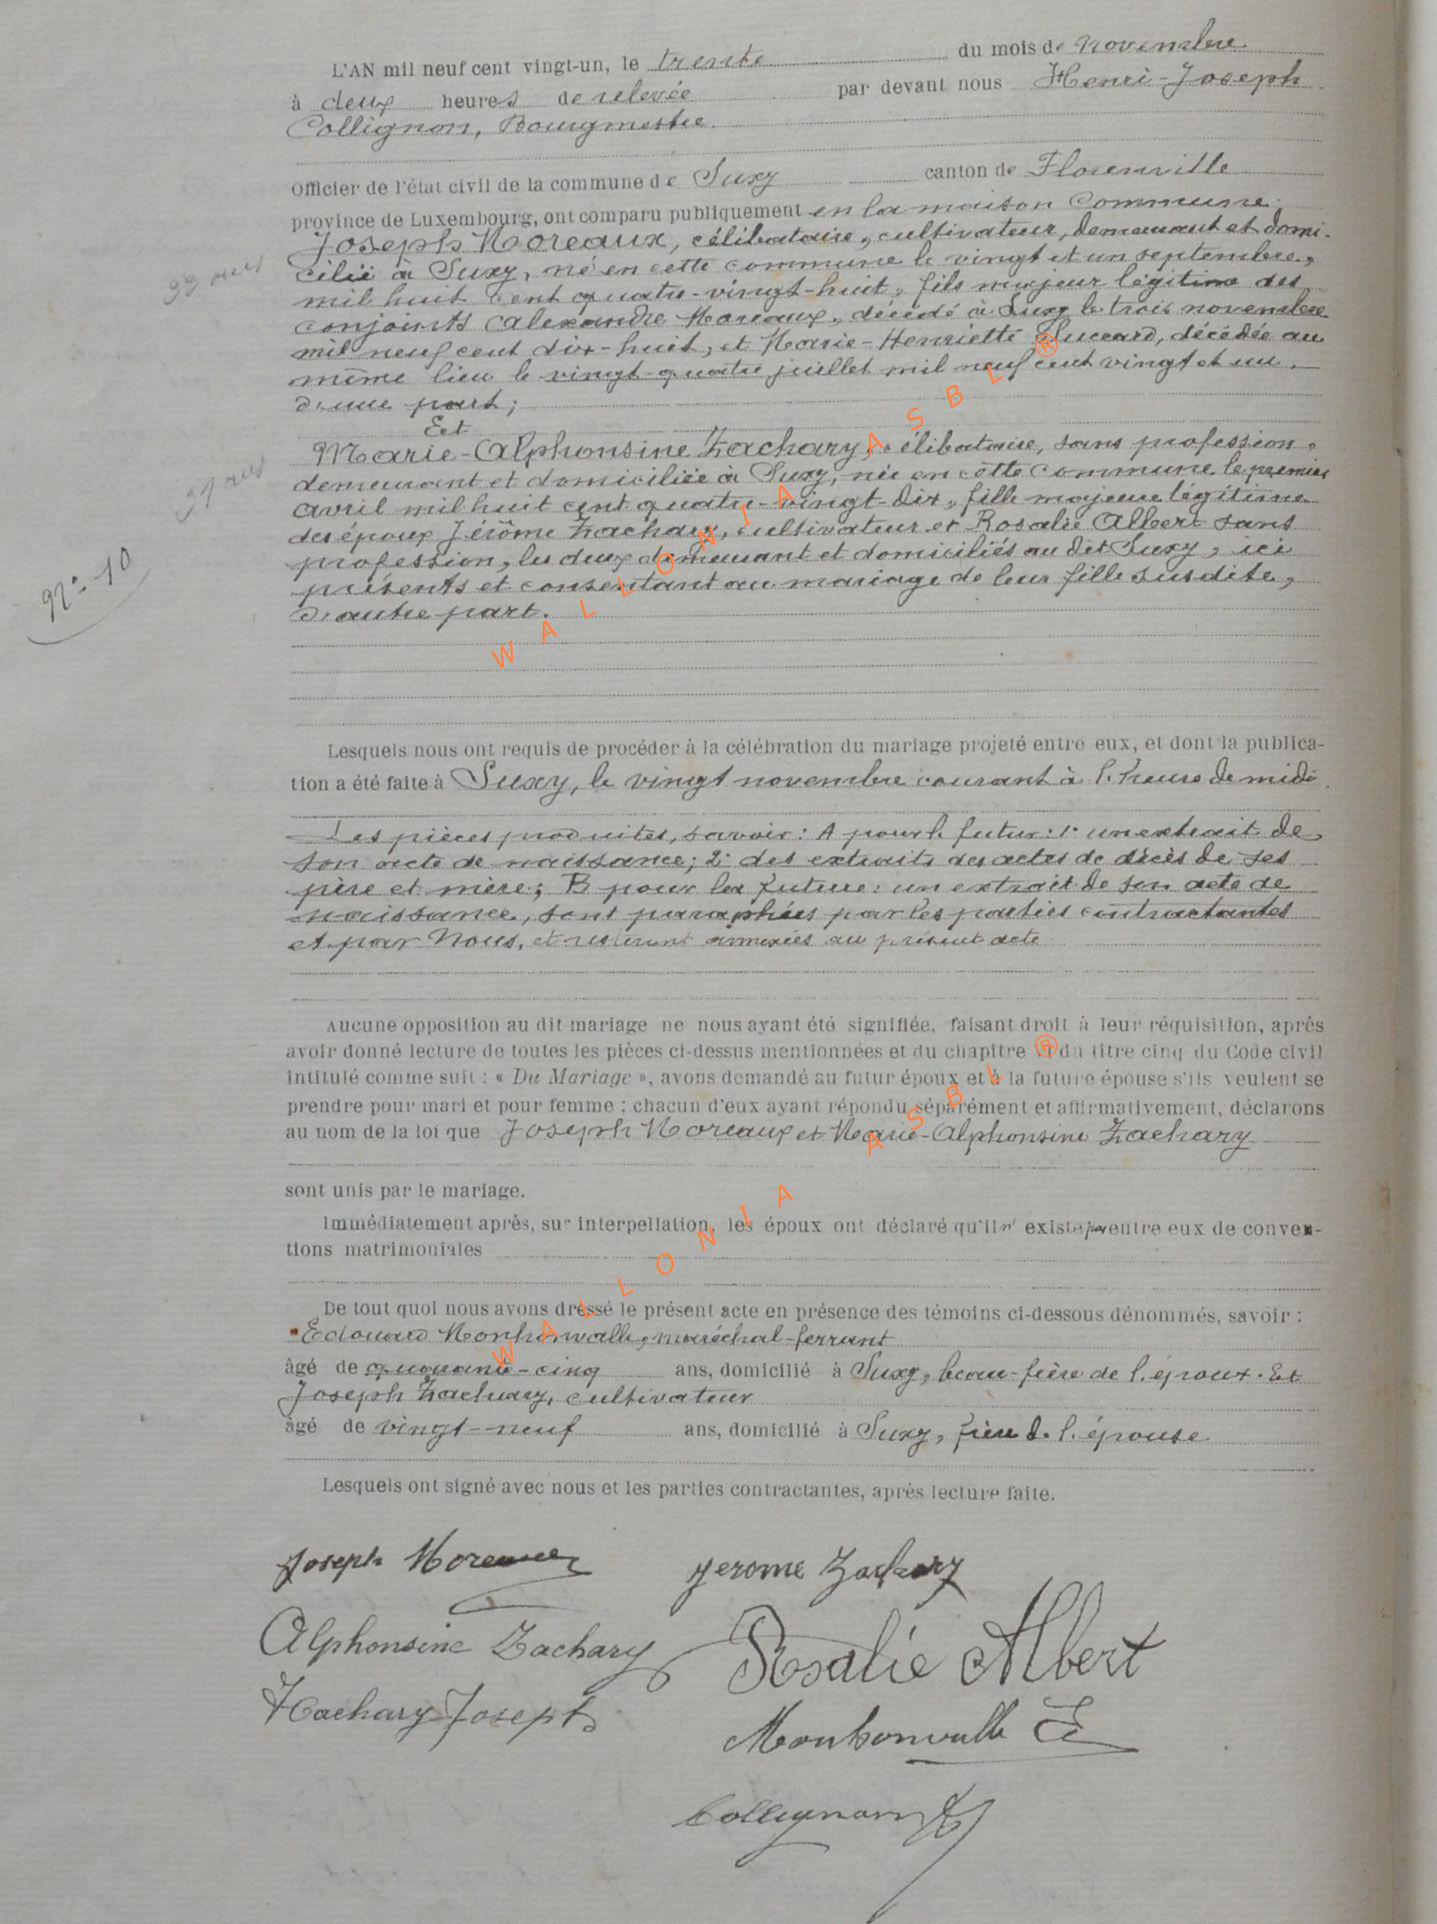 L'AN mil neuf cent vingt-un, le trente du mois de novembre
à deux heures de relevée par devant nous Henri-Joseph
Collignon, Bourgmestre.
Officier de l'état civil de la commune de Suxy canton de Florenville
province de Luxembourg, ont comparu publiquement en la maison Commune.
Joseph Moreaux, célibataire, cultivateur, demeurant et domi-
33 ans
cilié à Suxy, né en cette commune le vingt et un septembre,
mil huit cent quatre-vingt-huit, fils majeur légitime des
conjoints Alexandre Moreaux, décédé à Suxy le trois novembre
mil neuf cent dix-huit, et Marie-Henriette décédée au
même lieu le vingt-quatre juillet mil neuf cent vingt et un.
d'une part;
Et
Marie-Alphonsine Zachary, célibataire, sans profession,
31 ans
demeurant et domiciliée à Suxy, née en cette Commune le premier
avril mil huit cent quatre-vingt-dix, fille majeure légitime
des époux Jérôme Zachary, cultivateur et Rosalie Albert sans
profession, les deux demeurant et domiciliés au dit Suxy, ici
N° 10
présents et consentant au mariage de leur fille susdite,
d'autre part.
WALLONIA ASBL ®
Lesquels nous ont requis de procéder à la célébration du mariage projeté entre eux, et dont la publica-
tion a été faite à Suxy, le vingt novembre courant à l'heure de midi.
Les pièces produites, savoir: A pour le futur: 1° un extrait de
son acte de naissance; 2° des extraits des actes de décès de ses
père et mère; B pour la future: un extrait de son acte de
naissance, sont paraphées par les parties contractantes
et par Nous, et resteront annexées au présent acte
Aucune opposition au dit mariage ne nous ayant été signifiée, faisant droit à leur réquisition, après
avoir donné lecture de toutes les pièces ci-dessus mentionnées et du chapitre du titre cinq du Code civil
intitulé comme suit : « Du Mariage », avons demandé au futur époux et à la future épouse s'ils veulent se
prendre pour mari et pour femme ; chacun d'eux ayant répondu séparément et affirmativement, déclarons
au nom de la loi que Joseph Moreaux et Marie-Alphonsine Zachary
sont unis par le mariage.
Immédiatement après, sur interpellation, les époux ont déclaré qu'il n' existe pas entre eux de conven-
tions matrimoniales
De tout quoi nous avons dressé le présent acte en présence des témoins ci-dessous dénommés, savoir :
Edouard Monhonvalle, maréchal-ferrant
âgé de quarante-cinq ans, domicilié à Suxy, beau-frère de l'époux. Et
Joseph Zachary, cultivateur
âgé de vingt-neuf ans, domicilié à Suxy, frère de l'épouse
Lesquels ont signé avec nous et les parties contractantes, après lecture faite.
WALLONIA ASBL ®
Joseph Moreaux Jerome Zachary
Alphonsine Zachary Rosalie Albert
Zachary Joseph Monhonvalle E
Collignon H